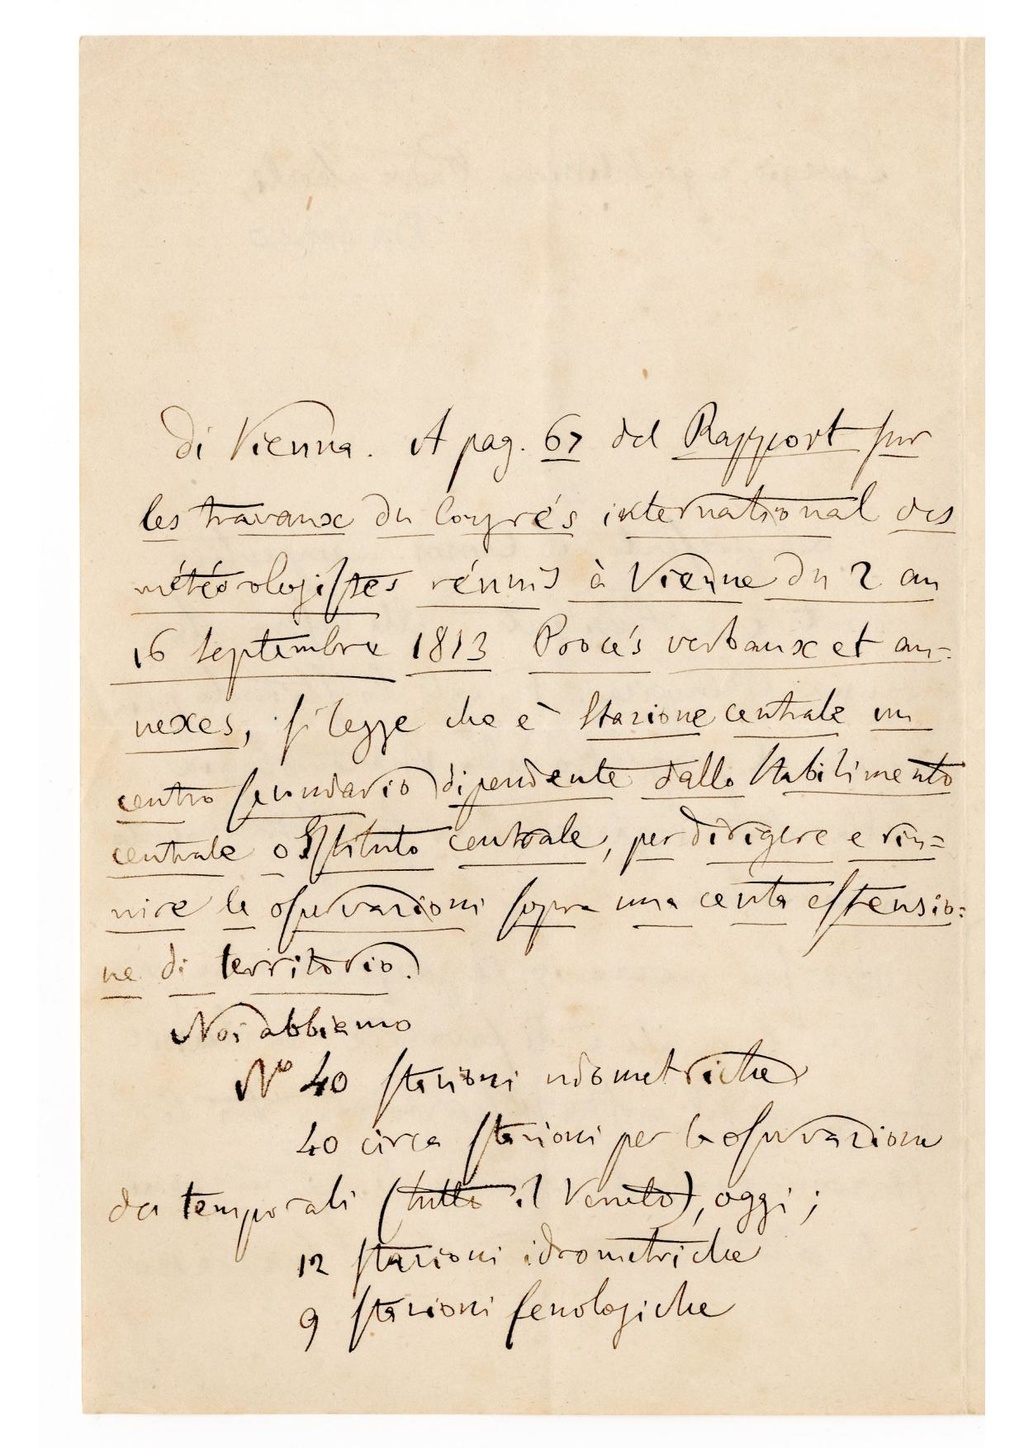 di Vienna. A pag. 67 del Rapport sur
les travaux du Congrés international des
météorologistes réunis à Vienne du 2 au
16 septembre 1873 Procés verbaux et an=
nexes, si legge che è Stazione centrale un
centro secundario dipendente dallo Stabilimento
centrale o Istituto centrale, per dirigere e riu=
nire le osservazioni sopra una certa estensio=
ne di territorio.
Noi abbiamo
No 40 stazioni udometriche
40 circa stazioni per le osservazioni
dei temporali (tutto il Veneto), oggi;
12 stazioni idrometriche
9 stazioni fenologiche